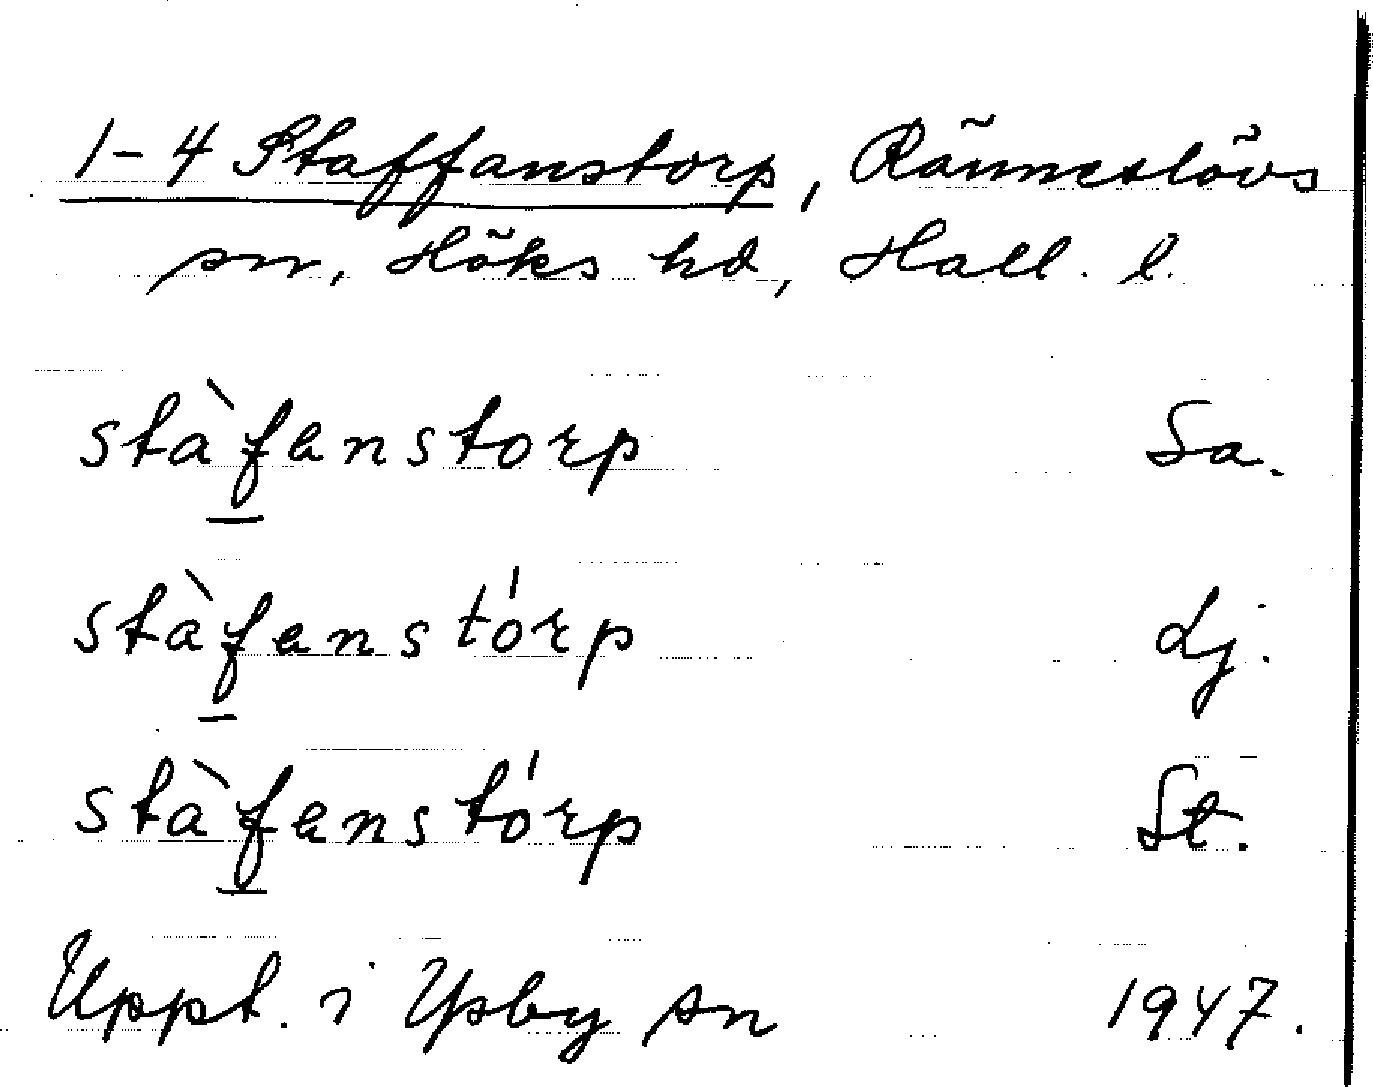 1-4 Staffanstorp, Ränneslövs
sn, Höks hd, Hall. l.
stàfanstorp Sa.
stàfanstórp Lj.
stàfanstórp St.
Uppt. i Ysby sn 1947.